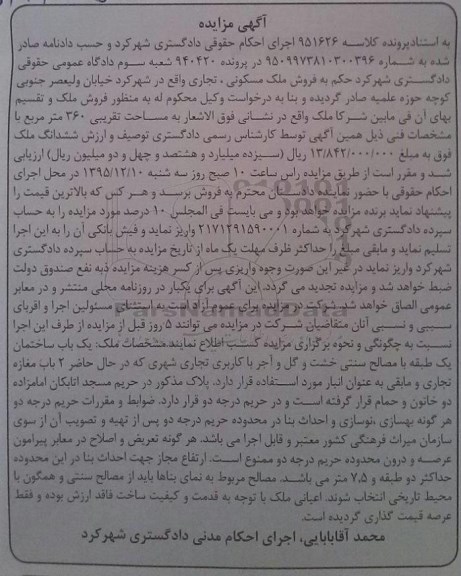 آگهی مزایده
به استنادپرونده کلاسه ۹۵۱۶۲۶ اجرای احکام حقوقی دادگستری شهرکرد و حسب دادنامه صادر
شده به شماره ۹۵۰۹۹۷۳۸۱۰۳۰۰۳۹۶ در پرونده ۹۴۰۴۲۰ شعبه سوم دادگاه عمومی حقوقی
دادگستری شهرکرد حکم به فروش ملک مسکونی ، تجاری واقع در شهرکرد خیابان ولیعصر جنوبی
کوچه حوزه علمیه صادر گردیده و بنا به درخواست وکیل محکوم له به منظور فروش ملک و تقسیم
بهای آن فی مابین شرکا ملک واقع در نشانی فوق الاشعار به مساحت تقریبی ۳۶۰ متر مربع با
مشخصات فنی ذیل همین آگهی توسط کارشناس رسمی دادگستری توصیف و ارزش ششدانگ ملک
فوق به مبلغ ۱۳/۸۴۲/۰۰۰/۰۰۰ ریال (سیزده میلیارد و هشتصد و چهل و دو میلیون ریال) ارزیابی
شد و مقرر است از طریق مزایده راس ساعت ۱۰ صبح روز سه شنبه ۱۳۹۵/۱۲/۱۰ در محل اجرای
احکام حقوقی با حضور نماینده دادستان محترم به فروش برسد و هر کس که بالاترین قیمت را
پیشنهاد نماید برنده مزایده خواهد بود و می بایست فی المجلس ۱۰ درصد مورد مزایده را به حساب
سپرده دادگستری شهرکرد به شماره ۲۱۷۱۲۹۱۵۹۰۰۰۱ واریز نماید و فیش بانکی آن را به این اجرا
تسلیم نماید و مابقی مبلغ را حداکثر ظرف مهلت یک ماه از تاریخ مزایده به حساب سپرده دادگستری
شهرکرد واریز نماید در غیر این صورت وجوه واریزی پس از کسر هزینه مزایده به نفع صندوق دولت
ضبط خواهد شد و مزایده تجدید می گردد. این آگهی برای یکبار در روزنامه محلی منتشر و در معابر
عمومی الصاق خواهد شد. شرکت در مزایده برای عموم آزاد است به استثنای مسئولین اجرا و اقربای
سببی و نسبی آنان متقاضیان شرکت در مزایده می توانند ۵ روز قبل از مزایده از طرف این اجرا
نسبت به چگونگی و نحوه برگزاری مزایده کسب اطلاع نمایند مشخصات ملک: یک باب ساختمان
یک طبقه با مصالح سنتی خشت و گل و آجر با کاربری تجاری شهری که در حال حاضر ۲ باب مغازه
تجاری و مابقی به عنوان انبار مورد استفاده قرار دارد. پلاک مذکور در حریم مسجد اتابکان امامزاده
دو خاتون و حمام قرار گرفته است و در حریم درجه دو قرار دارد. ضوابط و مقررات حریم درجه دو
هر گونه بهسازی ،نوسازی و احداث بنا در محدوده حریم درجه دو پس از تهیه و تصویب آن از سوی
سازمان میراث فرهنگی کشور معتبر و قابل اجرا می باشد. هر گونه تعریض و اصلاح در معابر پیرامون
عرصه و درون محدوده حریم درجه دو ممنوع است. ارتفاع مجاز جهت احداث بنا در این محدوده
حداکثر دو طبقه و ۷٫۵ متر می باشد. مصالح مربوط به نمای بناها باید از مصالح سنتی و همگون با
محیط تاریخی انتخاب شوند. اعیانی ملک با توجه به قدمت و کیفیت ساخت فاقد ارزش بوده و فقط
عرصه قیمت گذاری گردیده است.
محمد آقابابایی، اجرای احکام مدنی دادگستری شهرکرد
ParsNamadData